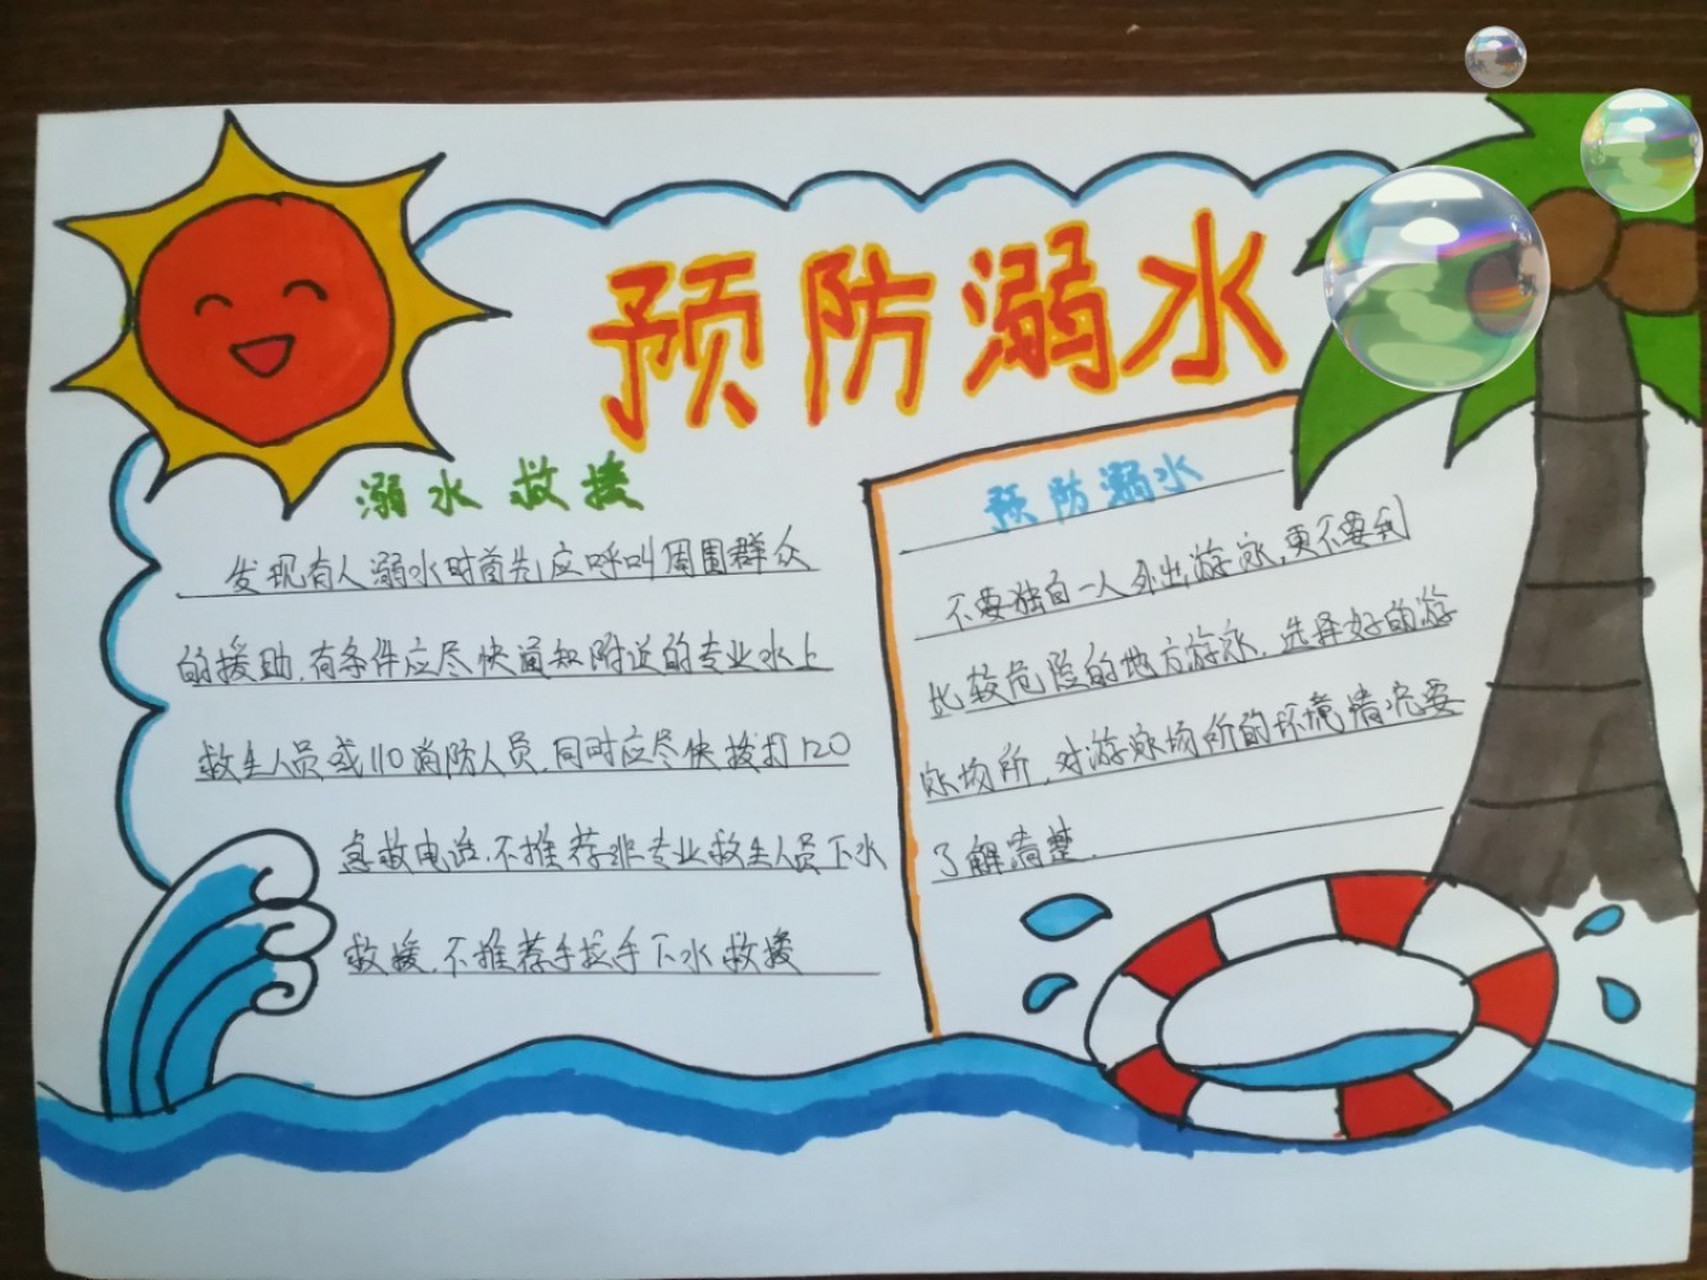 预防溺水
溺水救援
发现有人溺水时首先应呼叫周围群众
的援助,有条件应尽快通知附近的专业水上
救生人员或110消防人员,同时应尽快拨打120
急救电话,不推荐非专业救生人员下水
救援,不推荐手拉手下水救援
预防溺水
不要独自一人外出游泳,更不要到
比较危险的地方游泳,选择好的游
泳场所,对游泳场所的环境情况要
了解清楚.